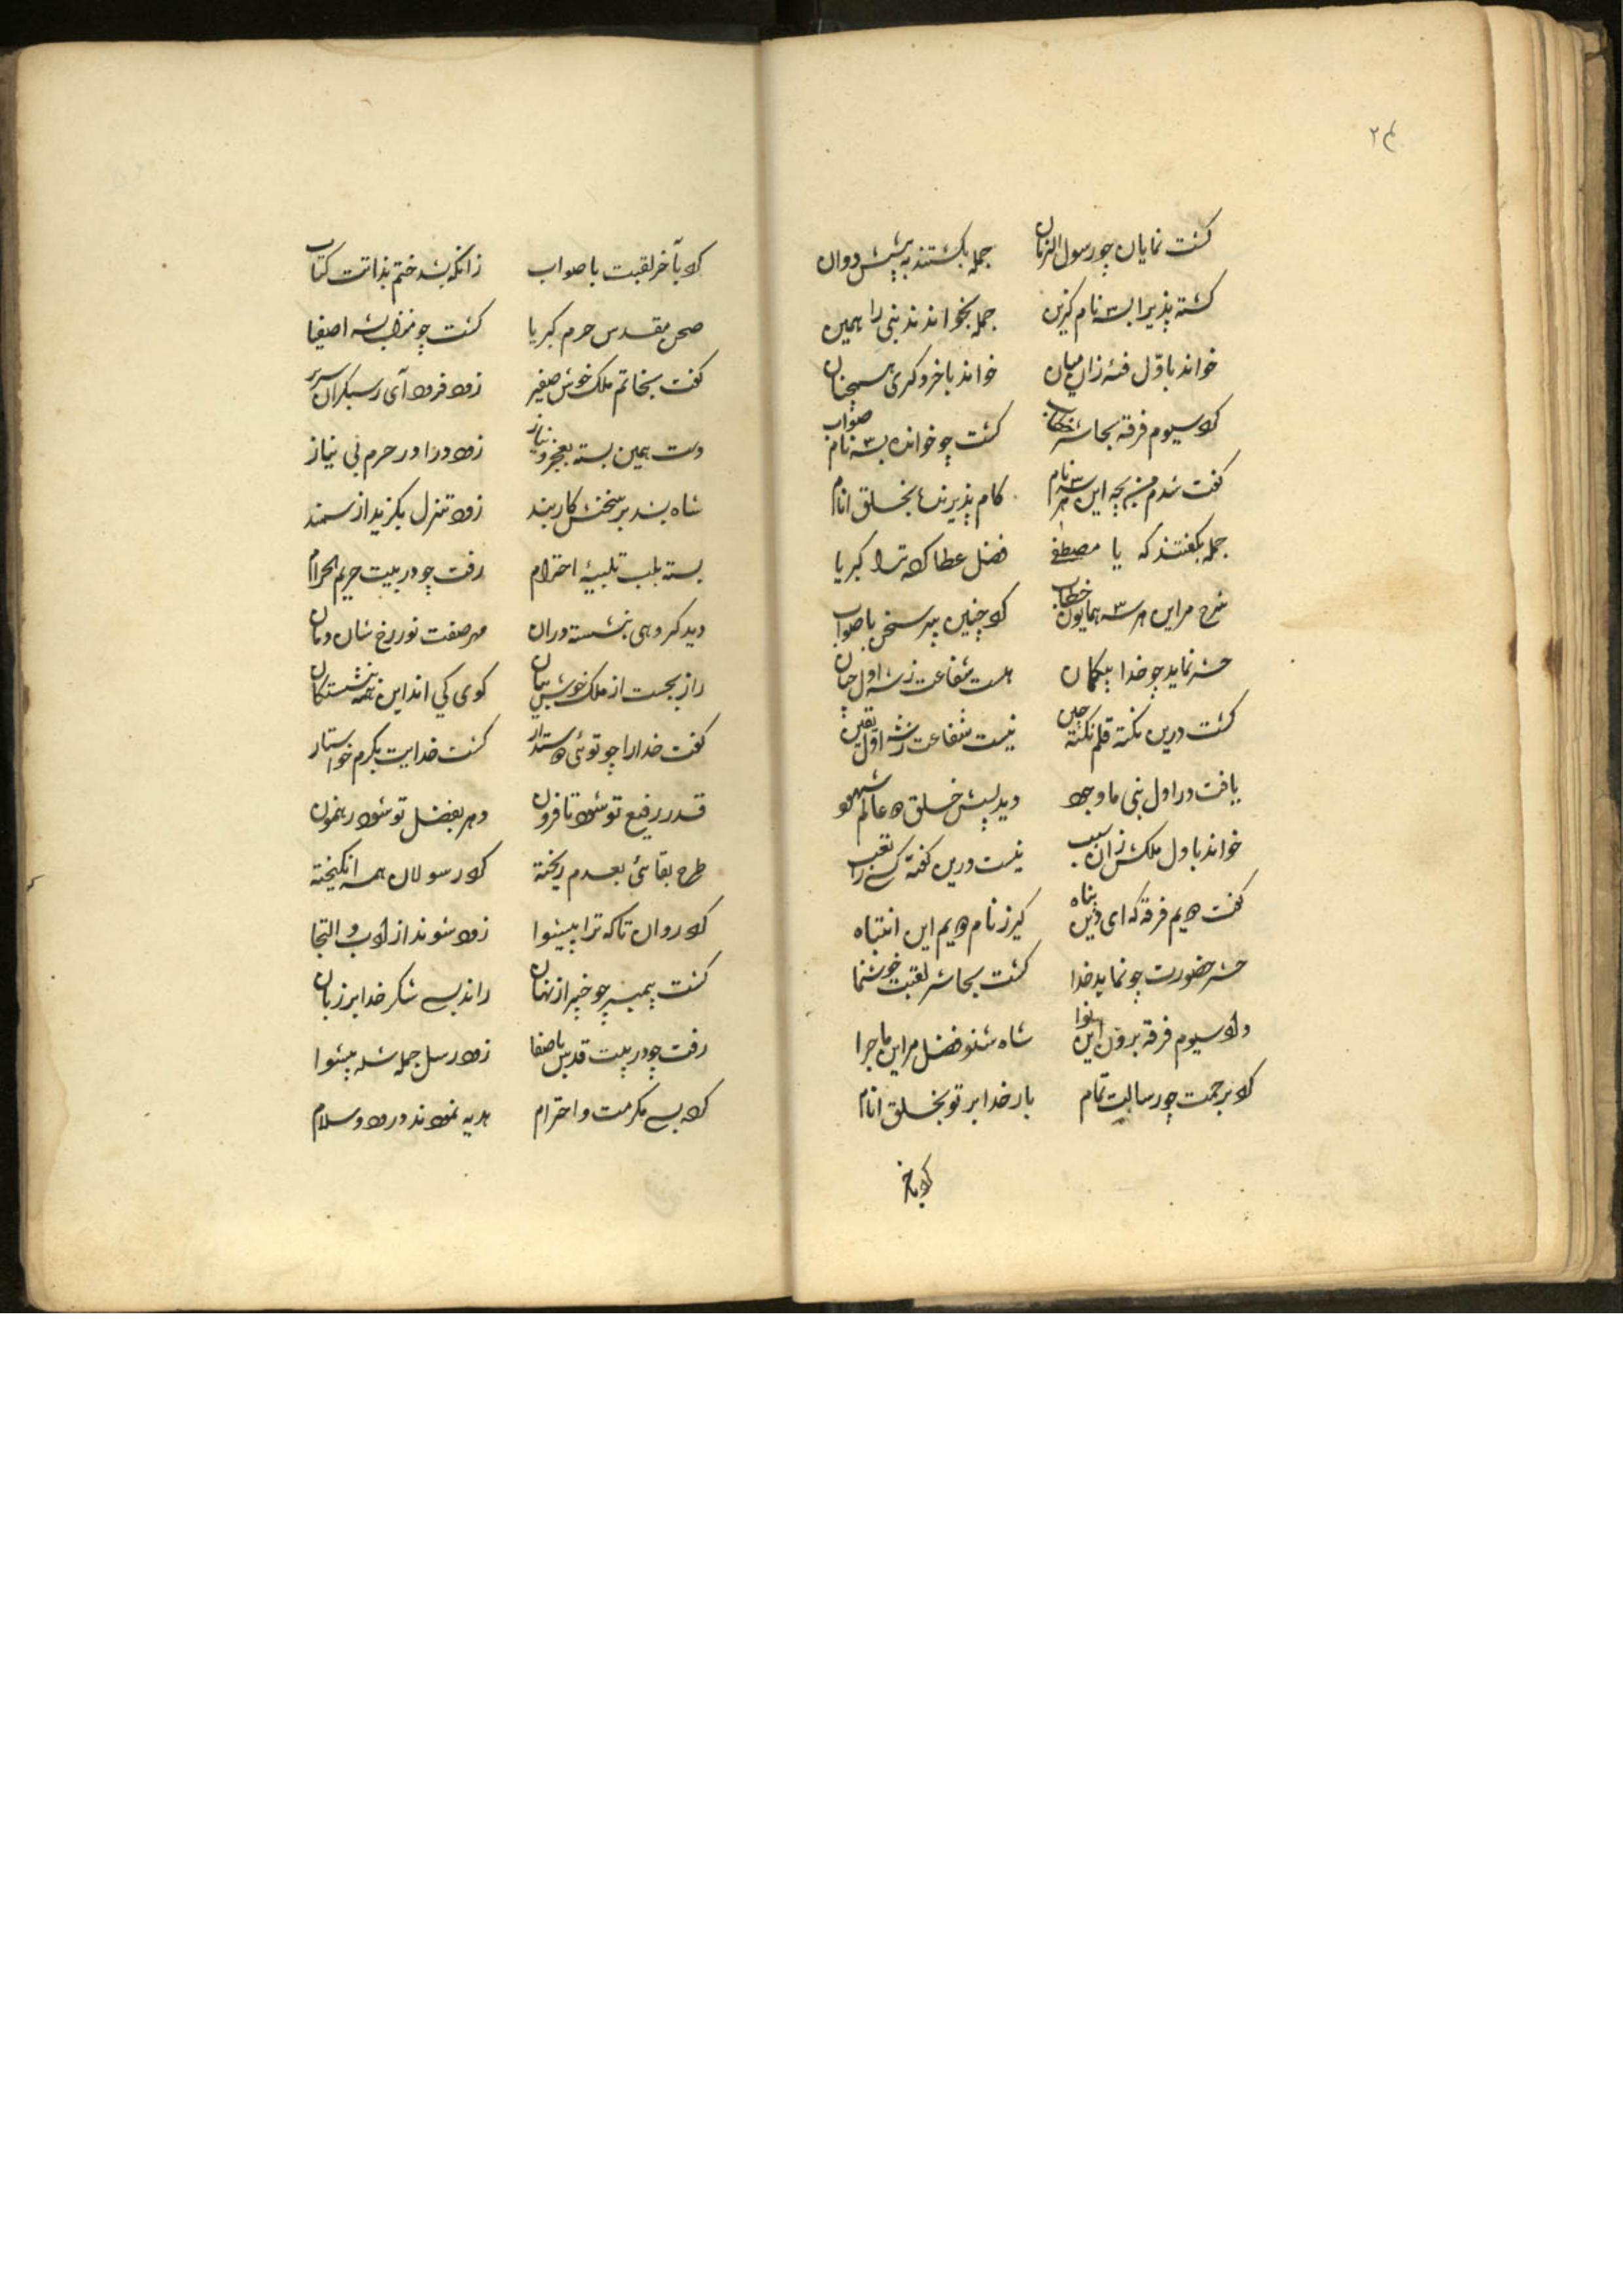 ۲۴
گشت نمایان چو رسول الزمان جمله بگشتند به پیشش دوان
گشته پذیرا بسه نام گزین جمله بخواندند نبی را همین
خواند باول فئه زان میان خواند بآخر دگری همچنان
کرد سیوم فرقه بحاشر خطاب گشت چو خوانده بسه نام صواب
گفت شدم من بچه این هر سه نام کام پذیرنده بخلق انام
جمله بگفتند که یا مصطفی فضل عطا کرد ترا کبریا
شرح مر این هر سه همایون خطاب کرد چنین پیر سخن با صواب
حشر نماید چو خدا بیگمان هست شفاعت ز شه اول چنان
گشت درین نکته قلم نکته چین نیست شفاعت ز شه اول یقین
یافت در اول نبی ما وجود دید پیش خلق دو عالم شهود
خواند باول ملکش زان سبب نیست درین گفته کسی را تعب
گفت دویم فرقه که ای دین پناه گیر ز نام دویم این انتباه
حشر حضورت چو نماید خدا گشت بحاشر لقبت خوشنما
داد سیوم فرقه برون این نوا شاه شنو فضل مر این ماجرا
کرد برحمت چو رسالت تمام بار خدا بر تو بخلق انام
کرد بآخر
کرد بآخر لقبت با صواب زانکه بشد ختم بذاتت کتاب
صحن مقدس حرم کبریا گشت چو منزل بشه اصفیا
گفت بخاتم ملک خوش صفیر زود فرود آی ز سبکران سریر
دست همین بسته بعجز و نیاز زود درا در حرم بی نیاز
شاه بشد بر سخنش کاربند زود تنزل بگزید از سمند
بسته بلب تلبیهٔ احترام رفت چو در بیت حریم الحرام
دید گروهی بنشسته دران مهر صفت نور رخ شان دمان
راز بجست از ملک خوش بیان کوی کی اند این همه بنشستگان
گفت خدا را چو توئی دوستدار گشت خدایت بکرم خواستار
قدر رفیع تو شود تا فزون دهر بفضل تو شود رهنمون
طرح بقاشی بعدم ریخته کرد رسولان همه انگیخته
کرد روان تا که ترا پیشوا زود شوند از ادب و التجا
گشت پیمبر چو خبیر از نهان راند بسی شکر خدا بر زبان
رفت چو در بیت قدس با صفا زود رسل جمله شده پیشوا
کرده بسی مکرمت و احترام هدیه نمودند درود و سلام